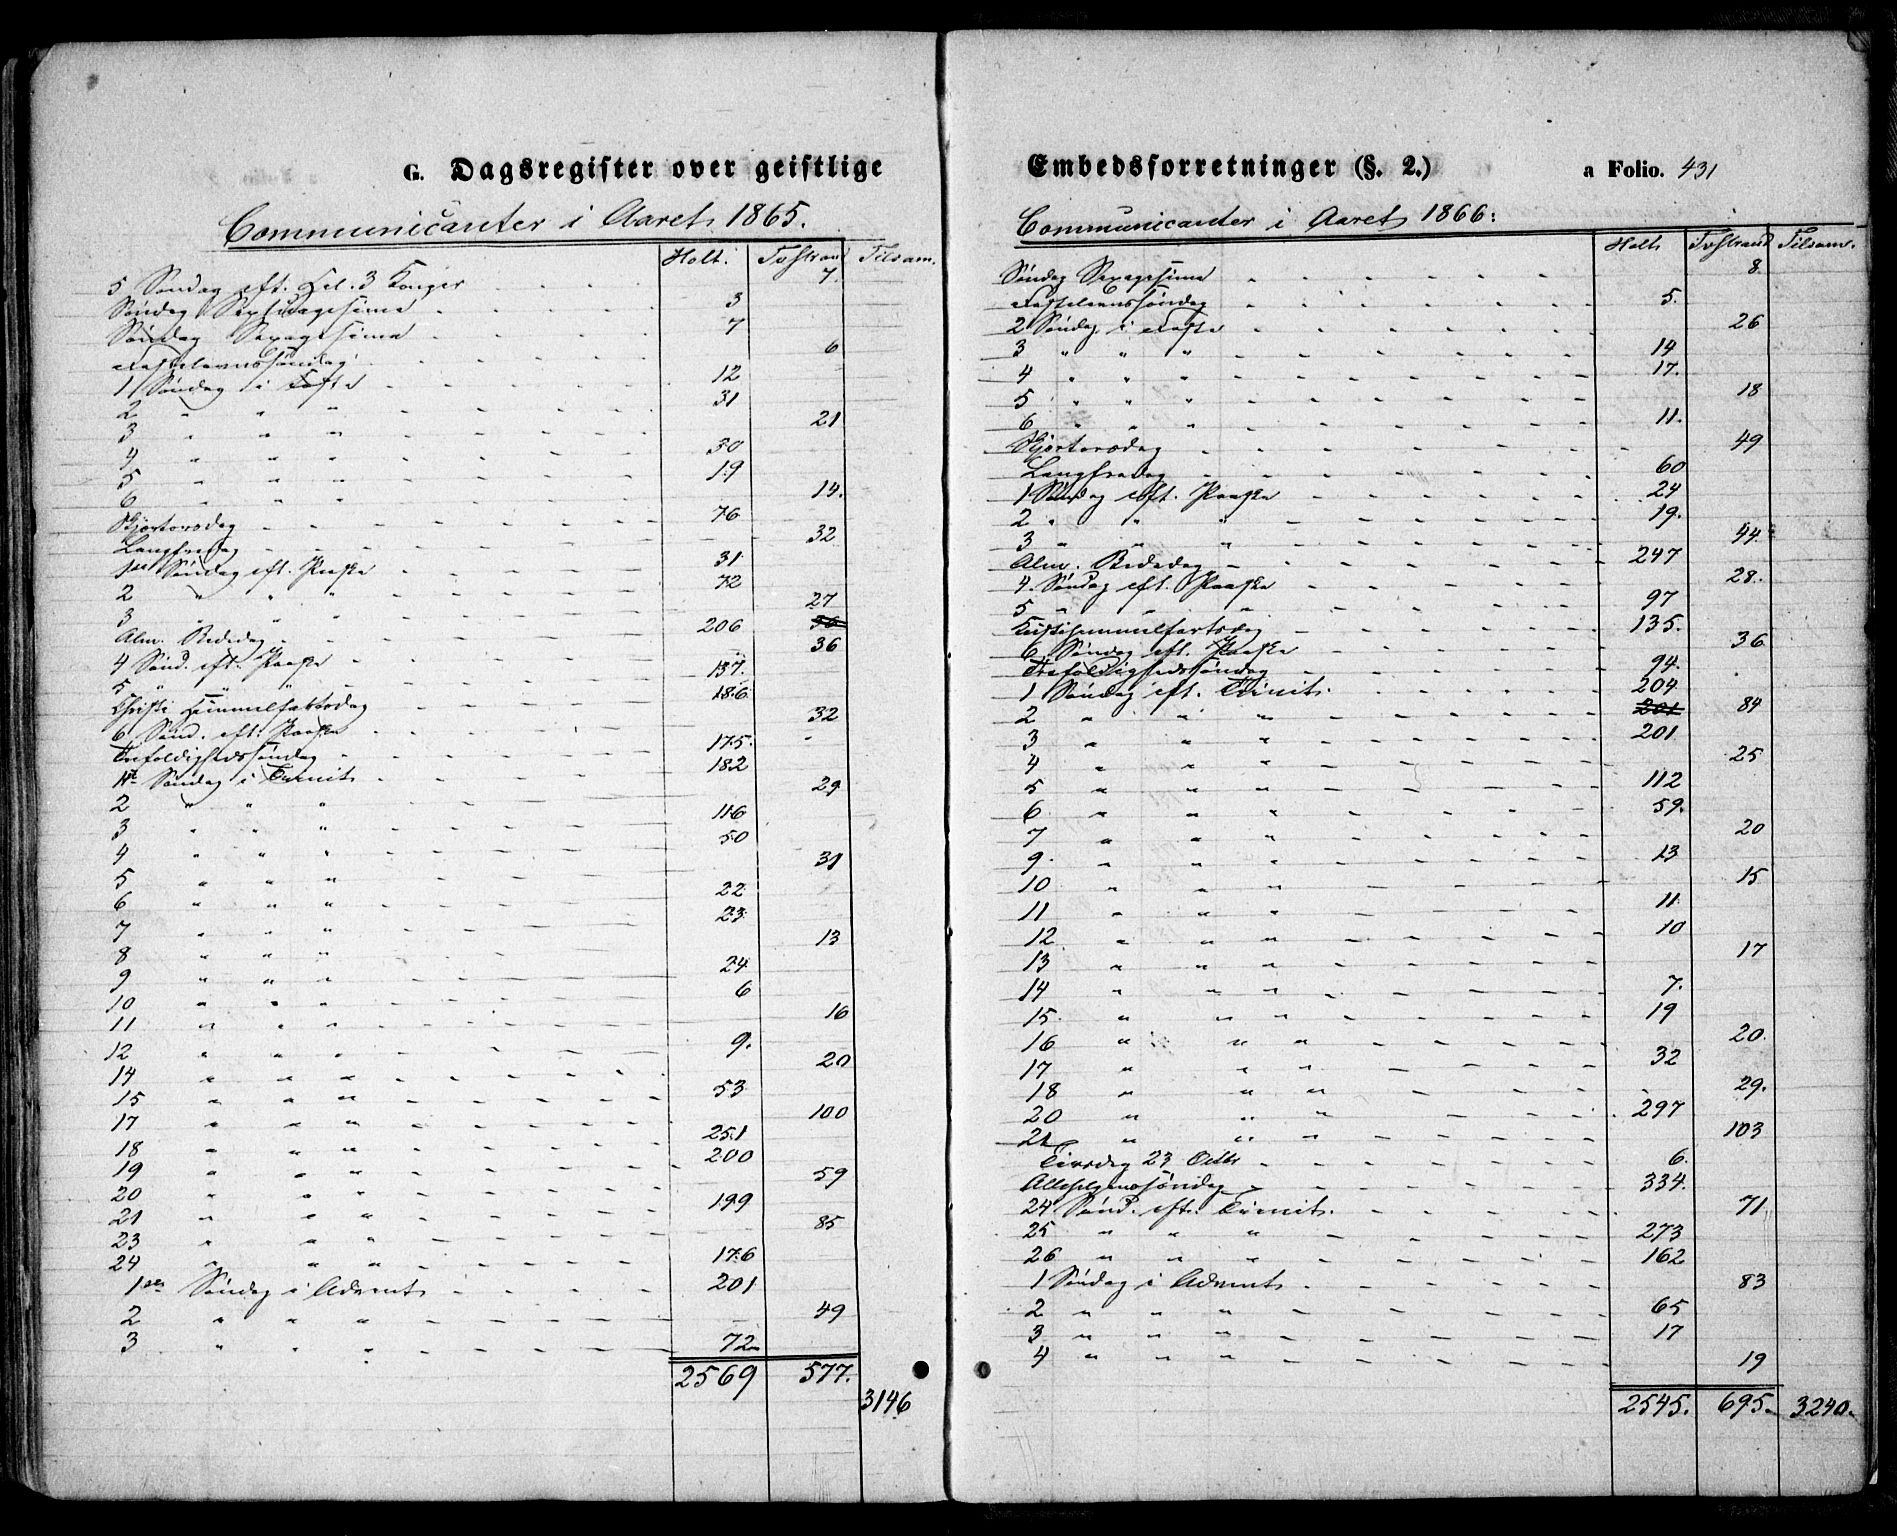 G. Dagsregister over geistlige
Communicanter i Aaret 1865.
Holt. Tvestrand Tilsam.
5 Søndag eft. Hel. 3 Konger - - - 7.
Søndag Septuagesima - - - 3
Søndag Sexagesima - - - 7
Fastelavnssøndag - - - 6
1 Søndag i Faste - - - 12
2 " " " - - - 31
3 " " " - - - 21
4 " " " - - - 30
5 " " " - - - 19
6 " " " - - - 14.
Skjertorsdag - - - 76
Langfredag - - - 32
1ste Søndag eft. Paaske - - - 31
2 " " " - - - 72
3 " " " - - - 27
Alm. Bededag - - - 206 36
4 Sønd. eft. Paaske - - - 36
5 " " " - - - 137.
Christi Himmelfartsdag - - - 186
6 Sønd. eft. Paaske - - - 32
Trefoldighedssøndag - - - 175.
1ste Søndag i Trinit - - - 182
2 " " " - - - 29
3 " " " - - - 116
4 " " " - - - 50
5 " " " - - - 31
6 " " " - - - 22
7 " " " - - - 23
8 " " " - - - 13
9 " " " - - - 24
10 " " " - - - 6
11 " " " - - - 16
12 " " " - - - 9.
14 " " " - - - 20
15 " " " - - - 53
17 " " " - - - 100
18 " " " - - - 251
19 " " " - - - 200
20 " " " - - - 59
21 " " " - - - 199
23 " " " - - - 85
24 " " " - - - 176
1ste Søndag i Advent - - - 201
2 " " " - - - 49
3 " " " - - - 72
2569 577.
3146
Embedsforretninger (§. 2.) a Folio. 431
Communicanter i Aaret 1866:
Holt Tvestrand Tilsam.
Søndag Sexagesima - - - 8
Fastelavnssøndag - - - 5.
2 Søndag i Faste - - - 26
3 " " " - - - 14
4 " " " - - - 17.
5 " " " - - - 18
6 " " " - - - 11.
Skjertorsdag - - - 49
Langfredag - - - 60
1 Søndag eft. Paaske - - - 24
2 " " " - - - 19.
3 " " " - - - 44
Alm. Bededag - - - 247
4. Søndag eft. Paaske - - - 28.
5 " " " - - - 97
Kristihimmelfartsdag - - - 135.
6 Søndag eft. Paaske - - - 36
Trefoldighedssøndag - - - 94.
1 Søndag eft. Trinit. - - - 204
2 " " " - - - 201 84
3 " " " - - - 201
4 " " " - - - 25
5 " " " - - - 112
6 " " " - - - 59.
7 " " " - - - 20
9. " " " - - - 13
10 " " " - - - 15
11 " " " - - - 11
12 " " " - - - 10
13 " " " - - - 17
14 " " " - - - 7.
15 " " " - - - 19
16 " " " - - - 20.
17 " " " - - - 32
18 " " " - - - 29.
20 " " " - - - 297
21 " " " - - - 103
Tirsdag 23 Octbr - - - 6.
Allehelgenssøndag - - - 334.
24 Sønd. eft. Trinit. - - - 71
25 " " " - - - 273
26 " " " - - - 162
1 Søndag i Advent - - - 83
2 " " " - - - 65
3 " " " - - - 17
4 " " " - - - 19
2545. 695. 3240.